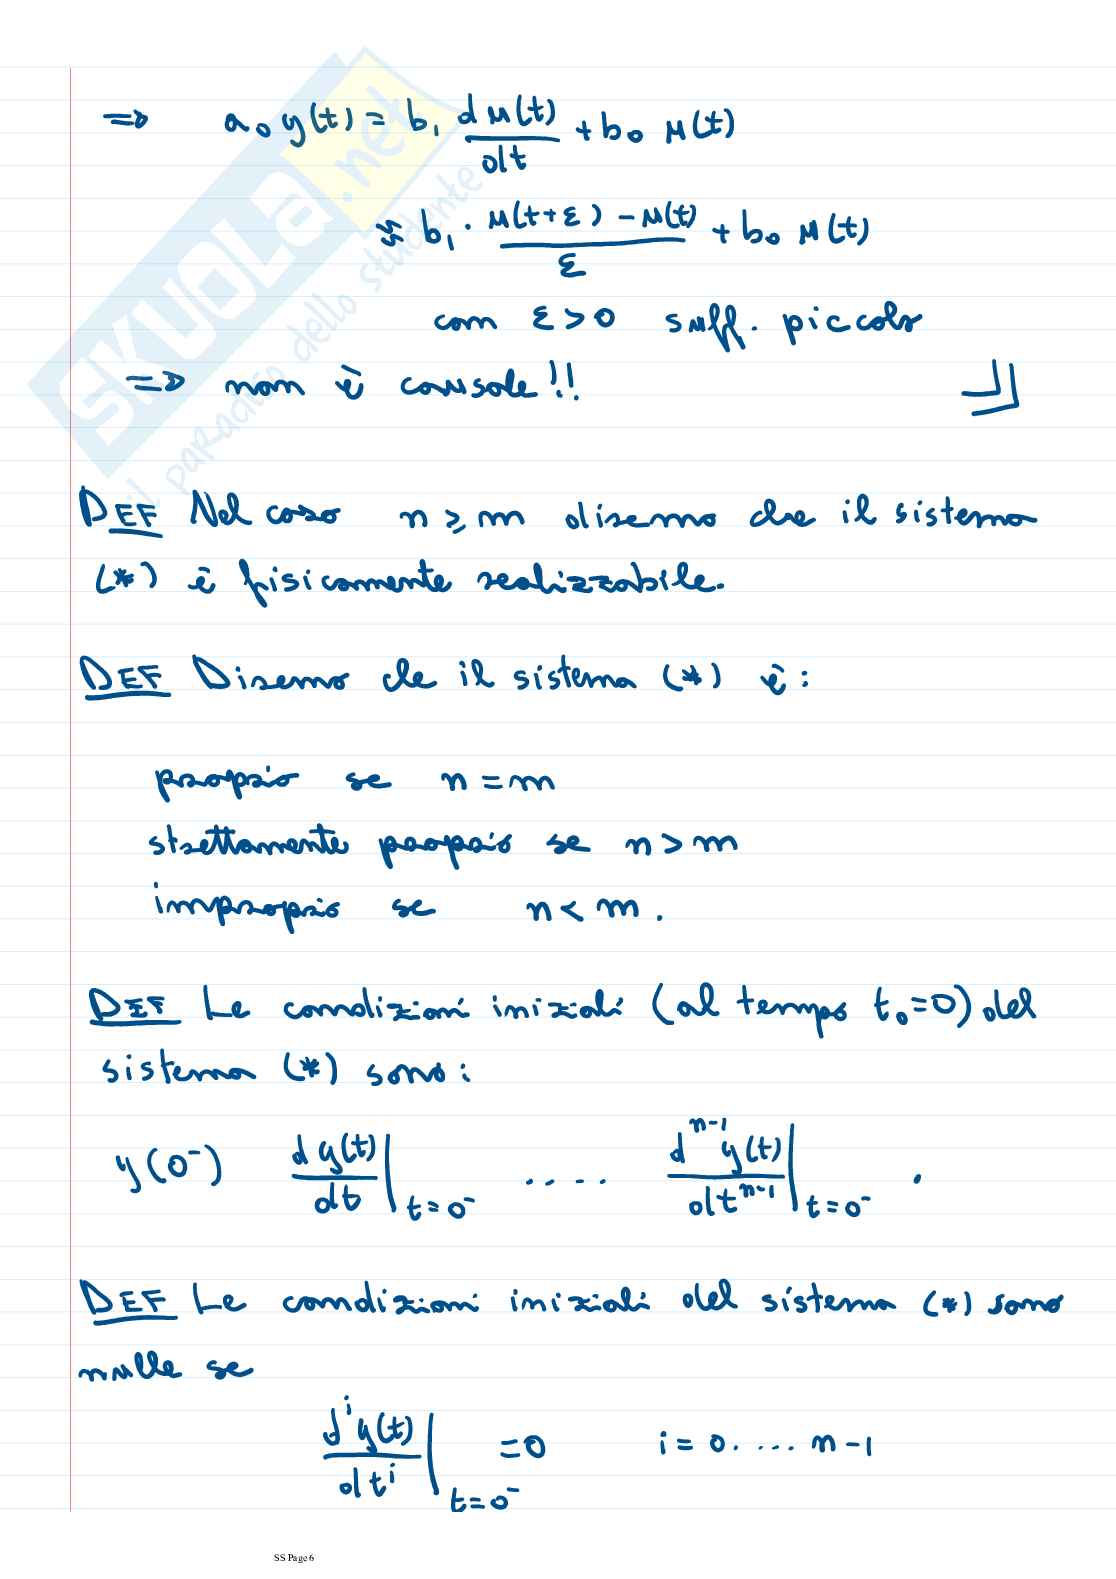 ⇒ a₀ y(t) = b₁ du(t)/dt + b₀ u(t)
≈ b₁ · (u(t+ε) - u(t))/ε + b₀ u(t)
con ε>0 suff. piccolo
⇒ non è causale!!
DEF Nel caso n ≥ m diremo che il sistema
(*) è fisicamente realizzabile.
DEF Diremo che il sistema (*) è:
proprio se n = m
strettamente proprio se n > m
improprio se n < m.
DEF Le condizioni iniziali (al tempo t₀=0) del
sistema (*) sono:
y(0⁻) dy(t)/dt |t=0⁻ ..... dⁿ⁻¹y(t)/dtⁿ⁻¹ |t=0⁻ .
DEF Le condizioni iniziali del sistema (*) sono
nulle se
dⁱy(t)/dtⁱ |t=0⁻ =0 i = 0. .... n-1
SS Page 6
SKUOLA.net
il paradiso dello studente